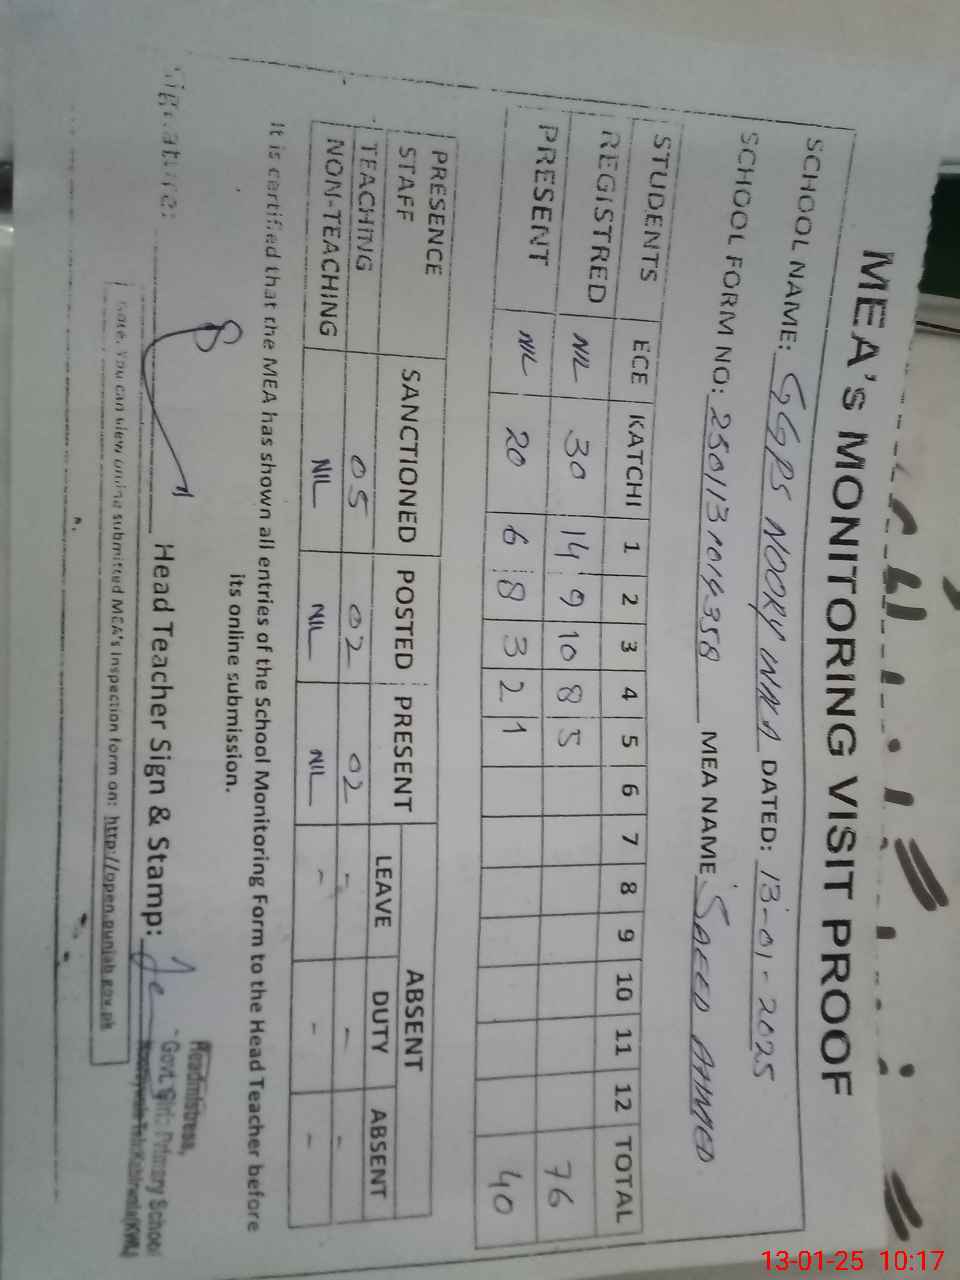 MEA's MONITORING VISIT PROOF
SCHOOL NAME: GGPS NOORY WALA DATED: 13-01-2025
SCHOOL FORM NO: 2501131014358 MEA NAME SAEED AHMED
STUDENTS ECE KATCHI 1 2 3 4 5 6 7 8 9 10 11 12 TOTAL
REGISTRED NIL 30 14 9 10 8 5 76
PRESENT NIL 20 6 8 3 2 1 40
PRESENCE SANCTIONED POSTED PRESENT ABSENT
STAFF LEAVE DUTY ABSENT
TEACHING 05 02 02 - - -
NON-TEACHING NIL NIL NIL - - -
It is certified that the MEA has shown all entries of the School Monitoring Form to the Head Teacher before
its online submission.
Signature: Head Teacher Sign & Stamp:
Headmistress,
Govt. Girls Primary School
Note: You can view online submitted MEA's Inspection form on: http://open.punjab.gov.pk
13-01-25 10:17